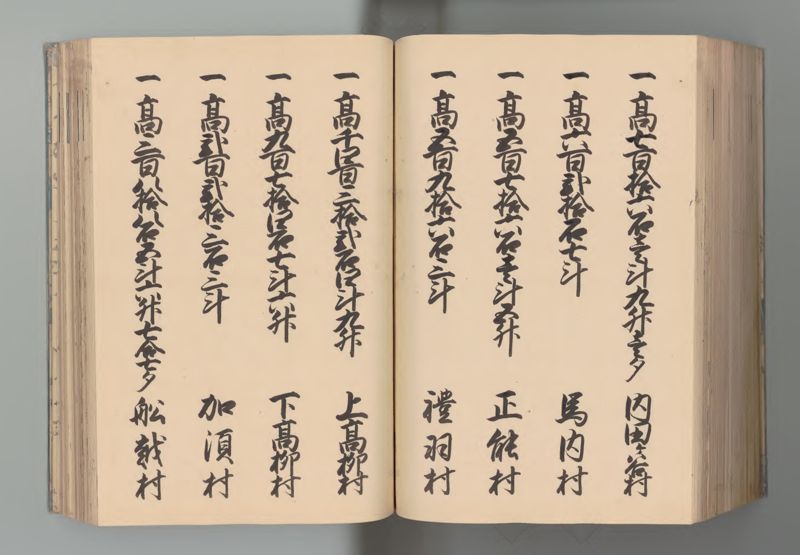 一 高七百拾六石壱斗九升壱夕 内田ヶ谷村
一 高六百弐拾石七斗 馬内村
一 高五百七拾六石壱斗五升 正能村
一 高五百九拾六石三斗 禮羽村
一 高千四百三拾弐石四斗九升 上高柳村
一 高九百七拾四石七斗六升 下高柳村
一 高弐百弐拾三石三斗 加須村
一 高三百八拾八石五斗六升七合七夕 舩越村